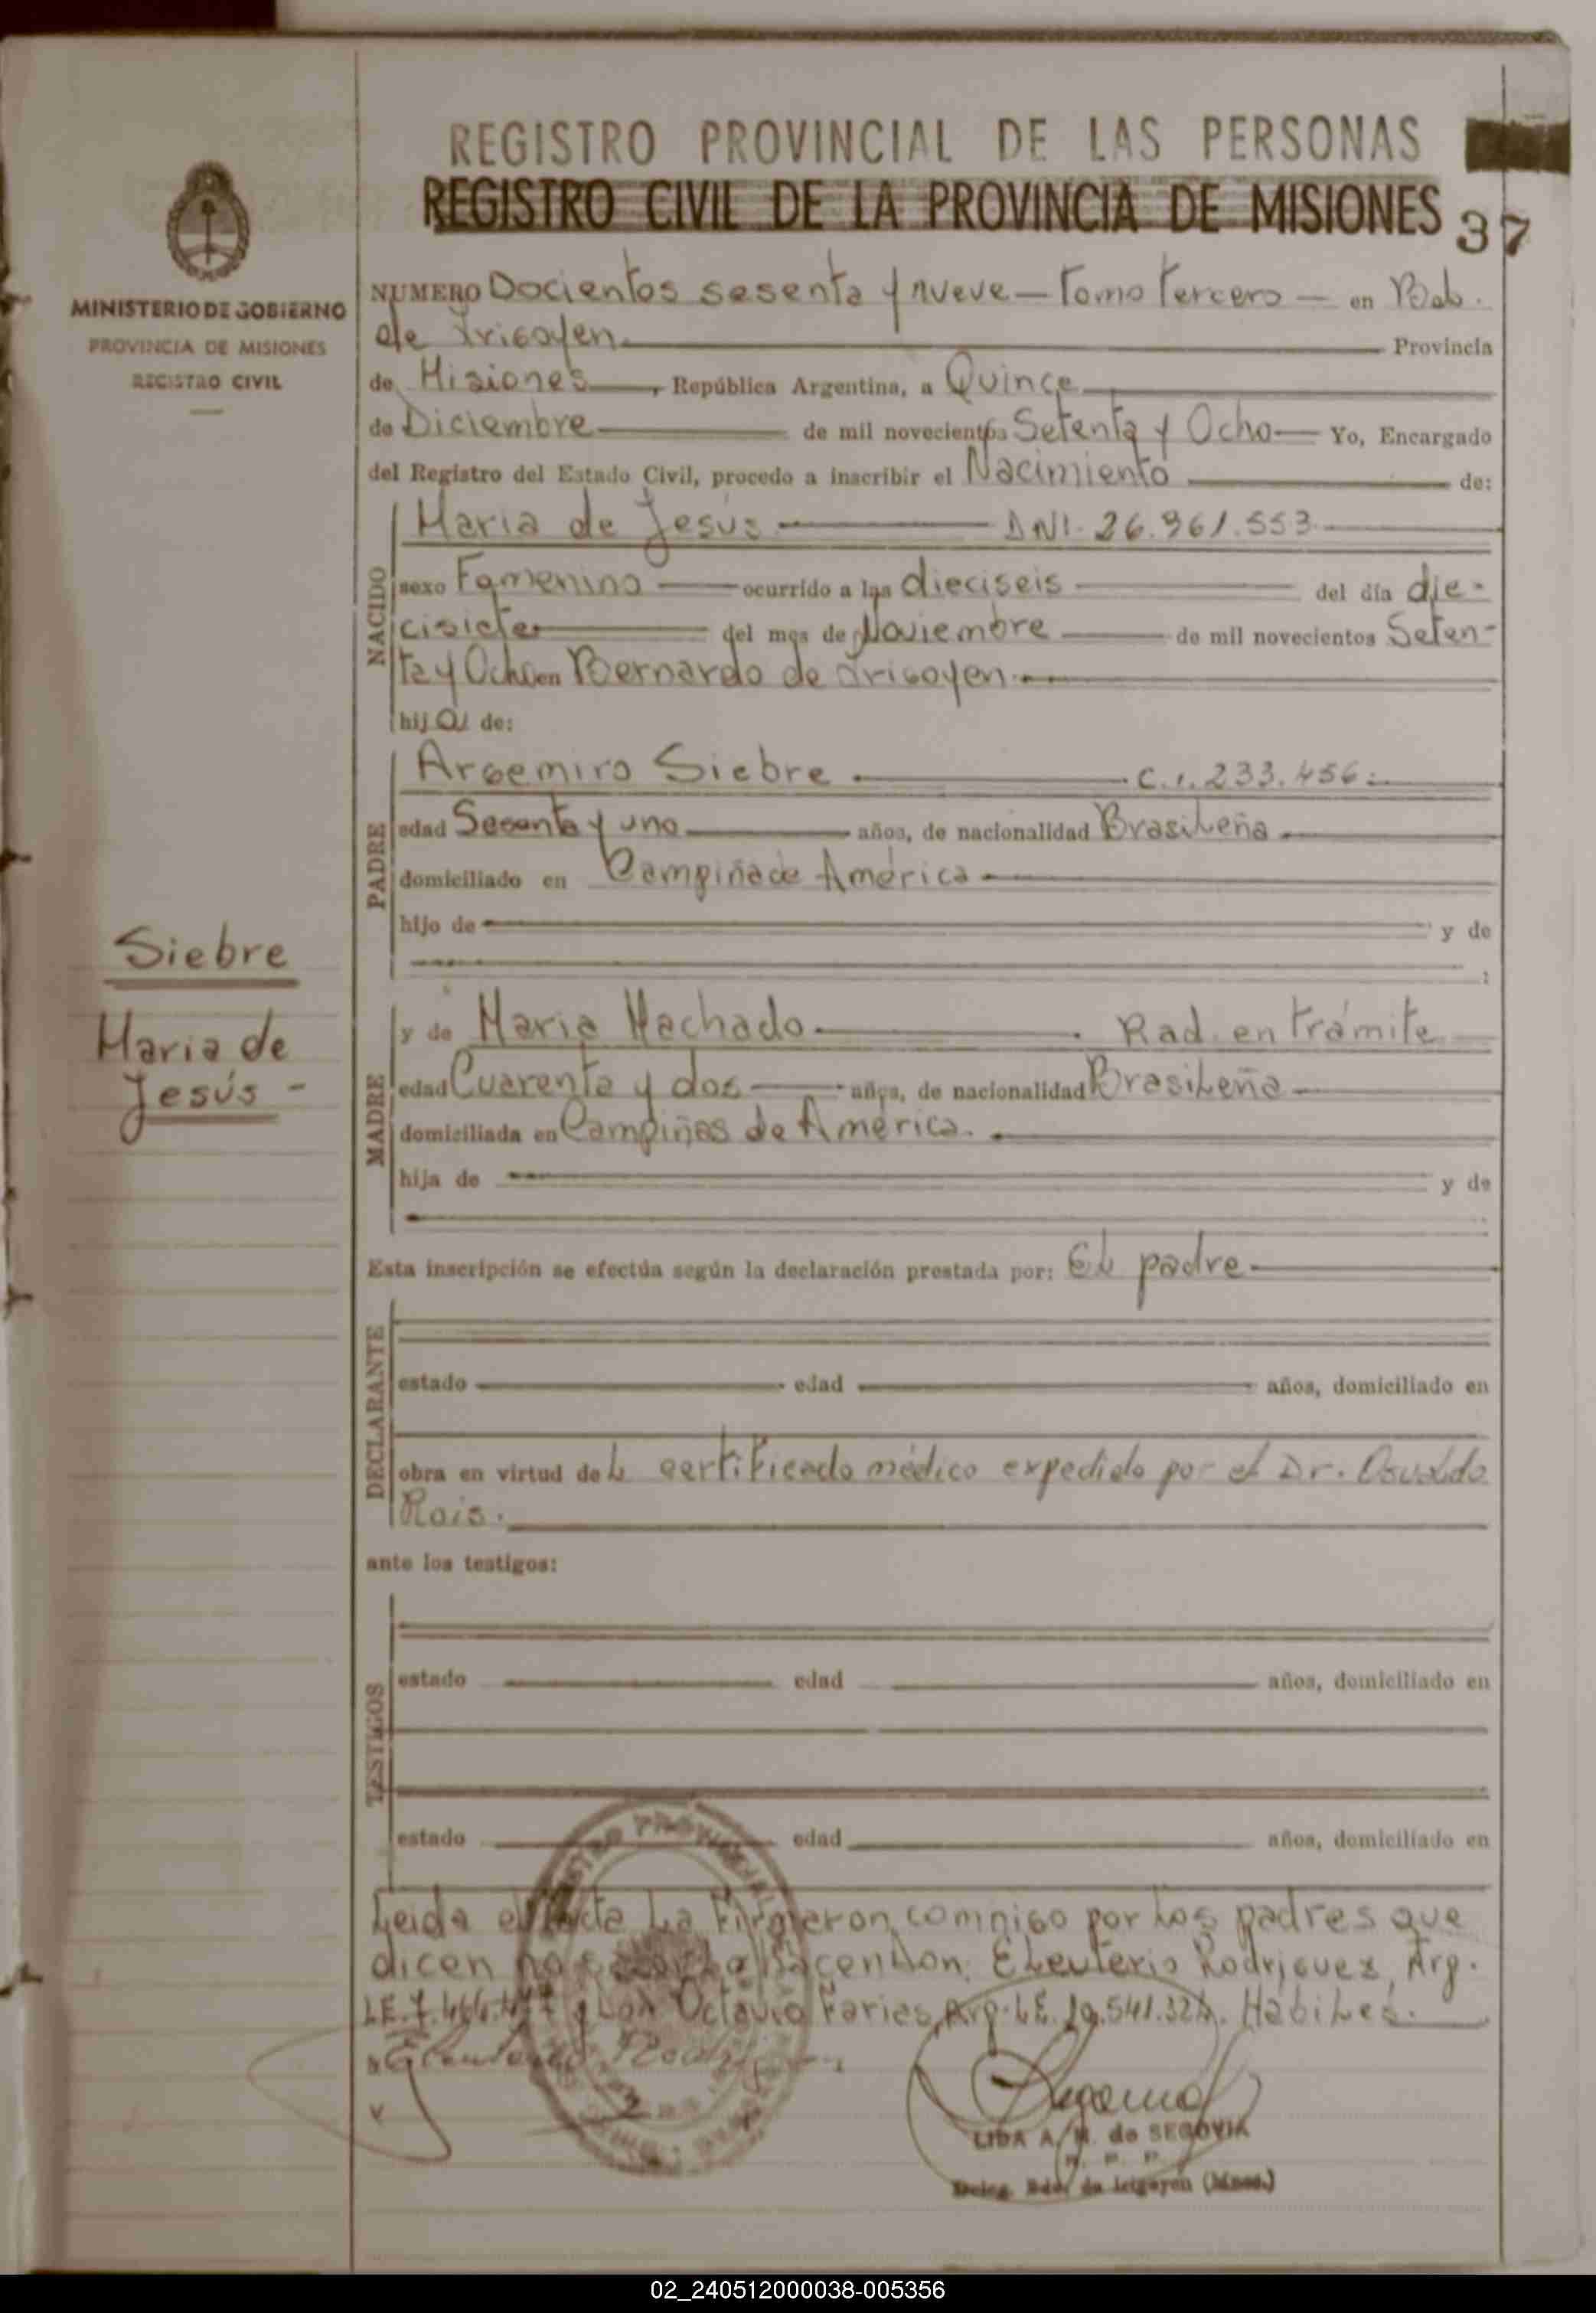 REGISTRO PROVINCIAL DE LAS PERSONAS
REGISTRO CIVIL DE LA PROVINCIA DE MISIONES
37
MINISTERIO DE GOBIERNO
PROVINCIA DE MISIONES
REGISTRO CIVIL
NUMERO Docientos sesenta y nueve — Tomo Tercero — en Bdo.
de Irigoyen. Provincia
de Misiones, República Argentina, a Quince
de Diciembre de mil novecientos Setenta y Ocho Yo, Encargado
del Registro del Estado Civil, procedo a inscribir el Nacimiento de:
NACIDO
Maria de Jesús DNI. 26.961.553
sexo Femenino ocurrido a las dieciseis del día die-
cisiete del mes de Noviembre de mil novecientos Seten-
ta y Ocho en Bernardo de Irigoyen.
hija de:
PADRE
Argemiro Siebre C.I. 233.456.
edad Sesenta y uno años, de nacionalidad Brasileña
domiciliado en Campiña de América
hijo de y de
Siebre
Maria de
Jesús -
MADRE
y de Maria Machado. Rad. en trámite
edad Cuarenta y dos años, de nacionalidad Brasileña
domiciliada en Campiñas de América.
hija de y de
Esta inscripción se efectúa según la declaración prestada por: El padre
DECLARANTE
estado edad años, domiciliado en
obra en virtud del certificado médico expedido por el Dr. Osvaldo
Rois.
ante los testigos:
TESTIGOS
estado edad años, domiciliado en
estado edad años, domiciliado en
Leida el Acta La Firmaron conmigo por Los padres que
dicen no hacen Don Eleuterio Rodriguez, Arg.
L.E. 7. y Don Octavio Farias, Arg. L.E. 10.541.324. Hábiles.
LIDA A. M. de SEGOVIA
Deleg. Bdo. de Irigoyen (Mnes.)
02_240512000038-005356